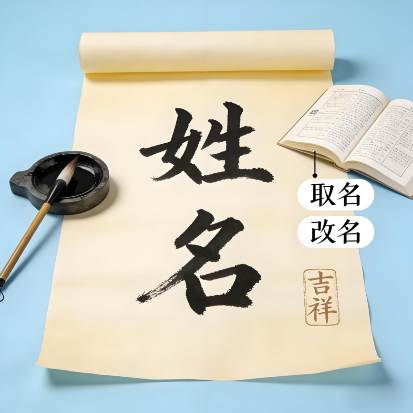 姓
名
取名
改名
吉祥